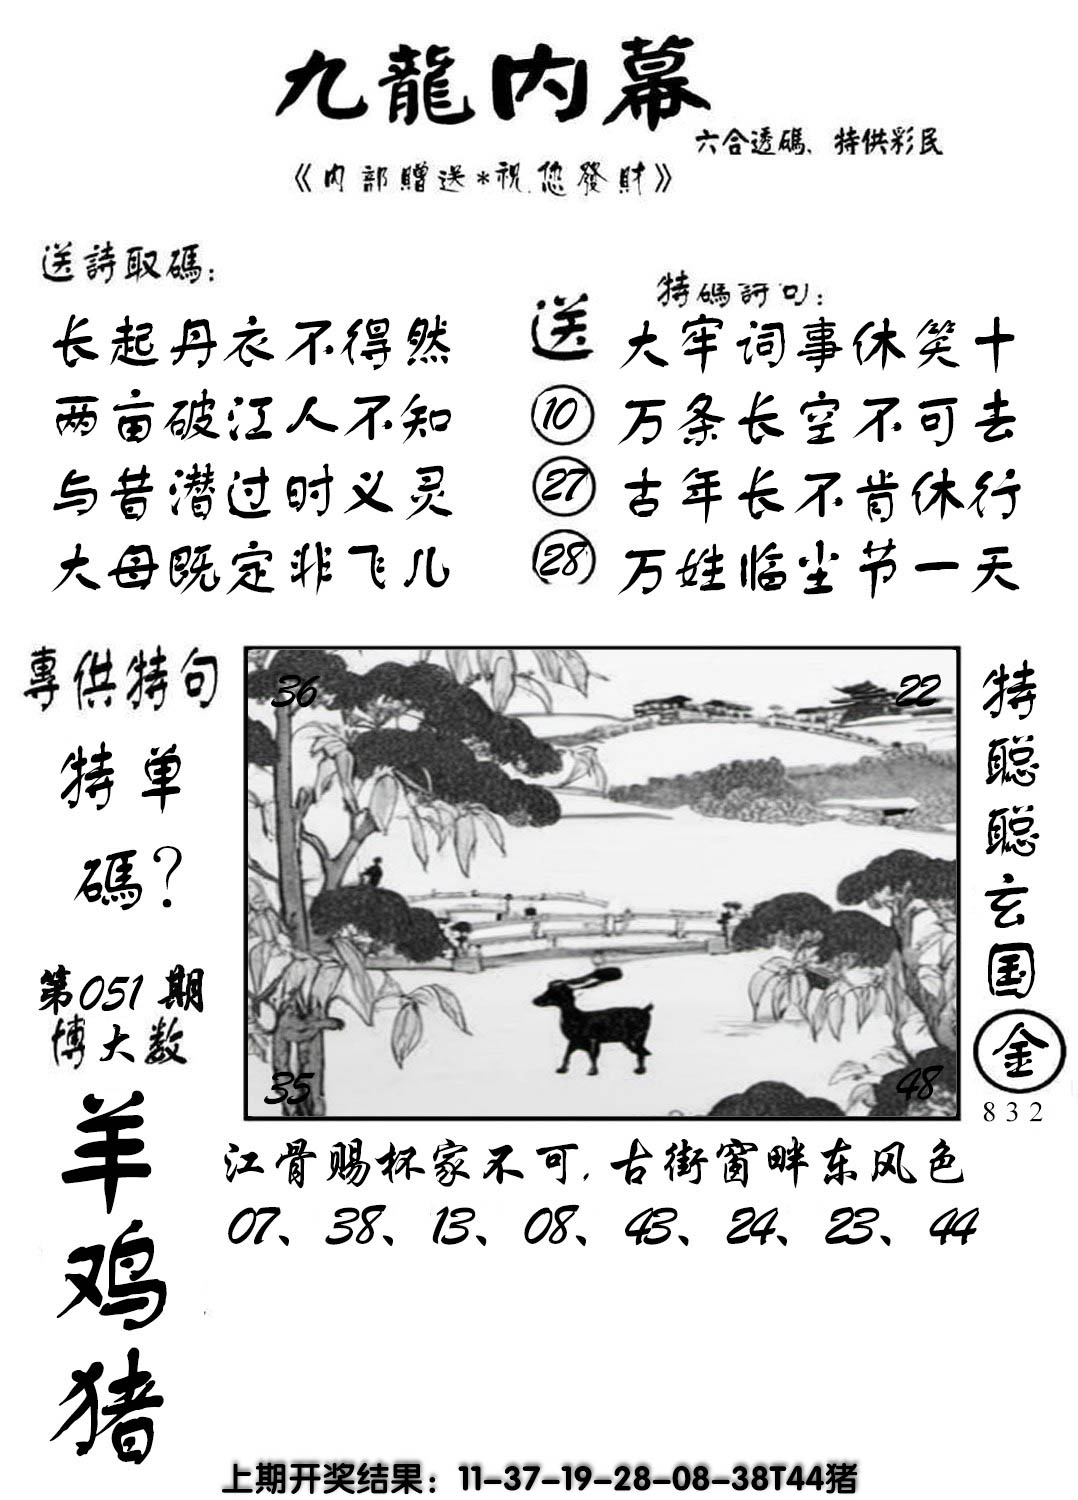 九龍内幕
六合透碼、特供彩民
《内部贈送*祝您發財》
送詩取碼：
长起丹衣不得然
两亩破江人不知
与昔潜过时义灵
大母既定非飞儿
送
10
27
28
特碼詩句：
大牢词事休笑十
万条长空不可去
古年长不肯休行
万姓临尘节一天
專供特句
特单
碼？
第051期
博大数
羊
鸡
猪
36
22
35
48
特
聪
聪
玄
国
金
832
江骨赐杯家不可，古街窗畔东风色
07、38、13、08、43、24、23、44
上期开奖结果：11-37-19-28-08-38T44猪